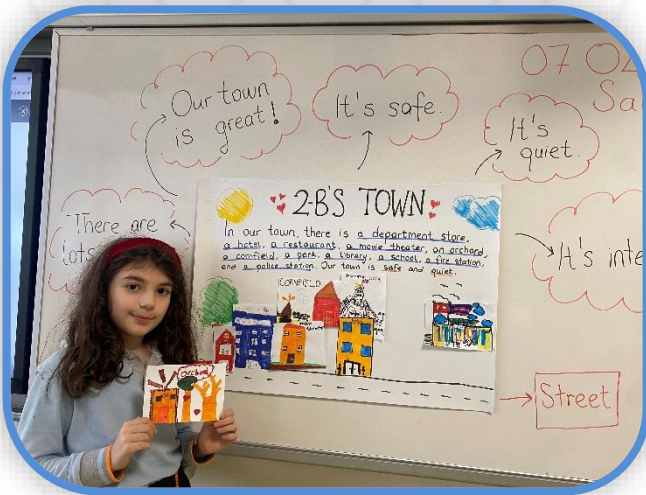 Our town
is great!
It's safe.
It's
quiet.
There are
07
2-B'S TOWN
In our town, there is a department store,
a hotel, a restaurant, a movie theater, an orchard,
a cornfield, a park, a library, a school, a fire station,
and a police station. Our town is safe and quiet.
CORNFIELD
It's
Orchard
Street